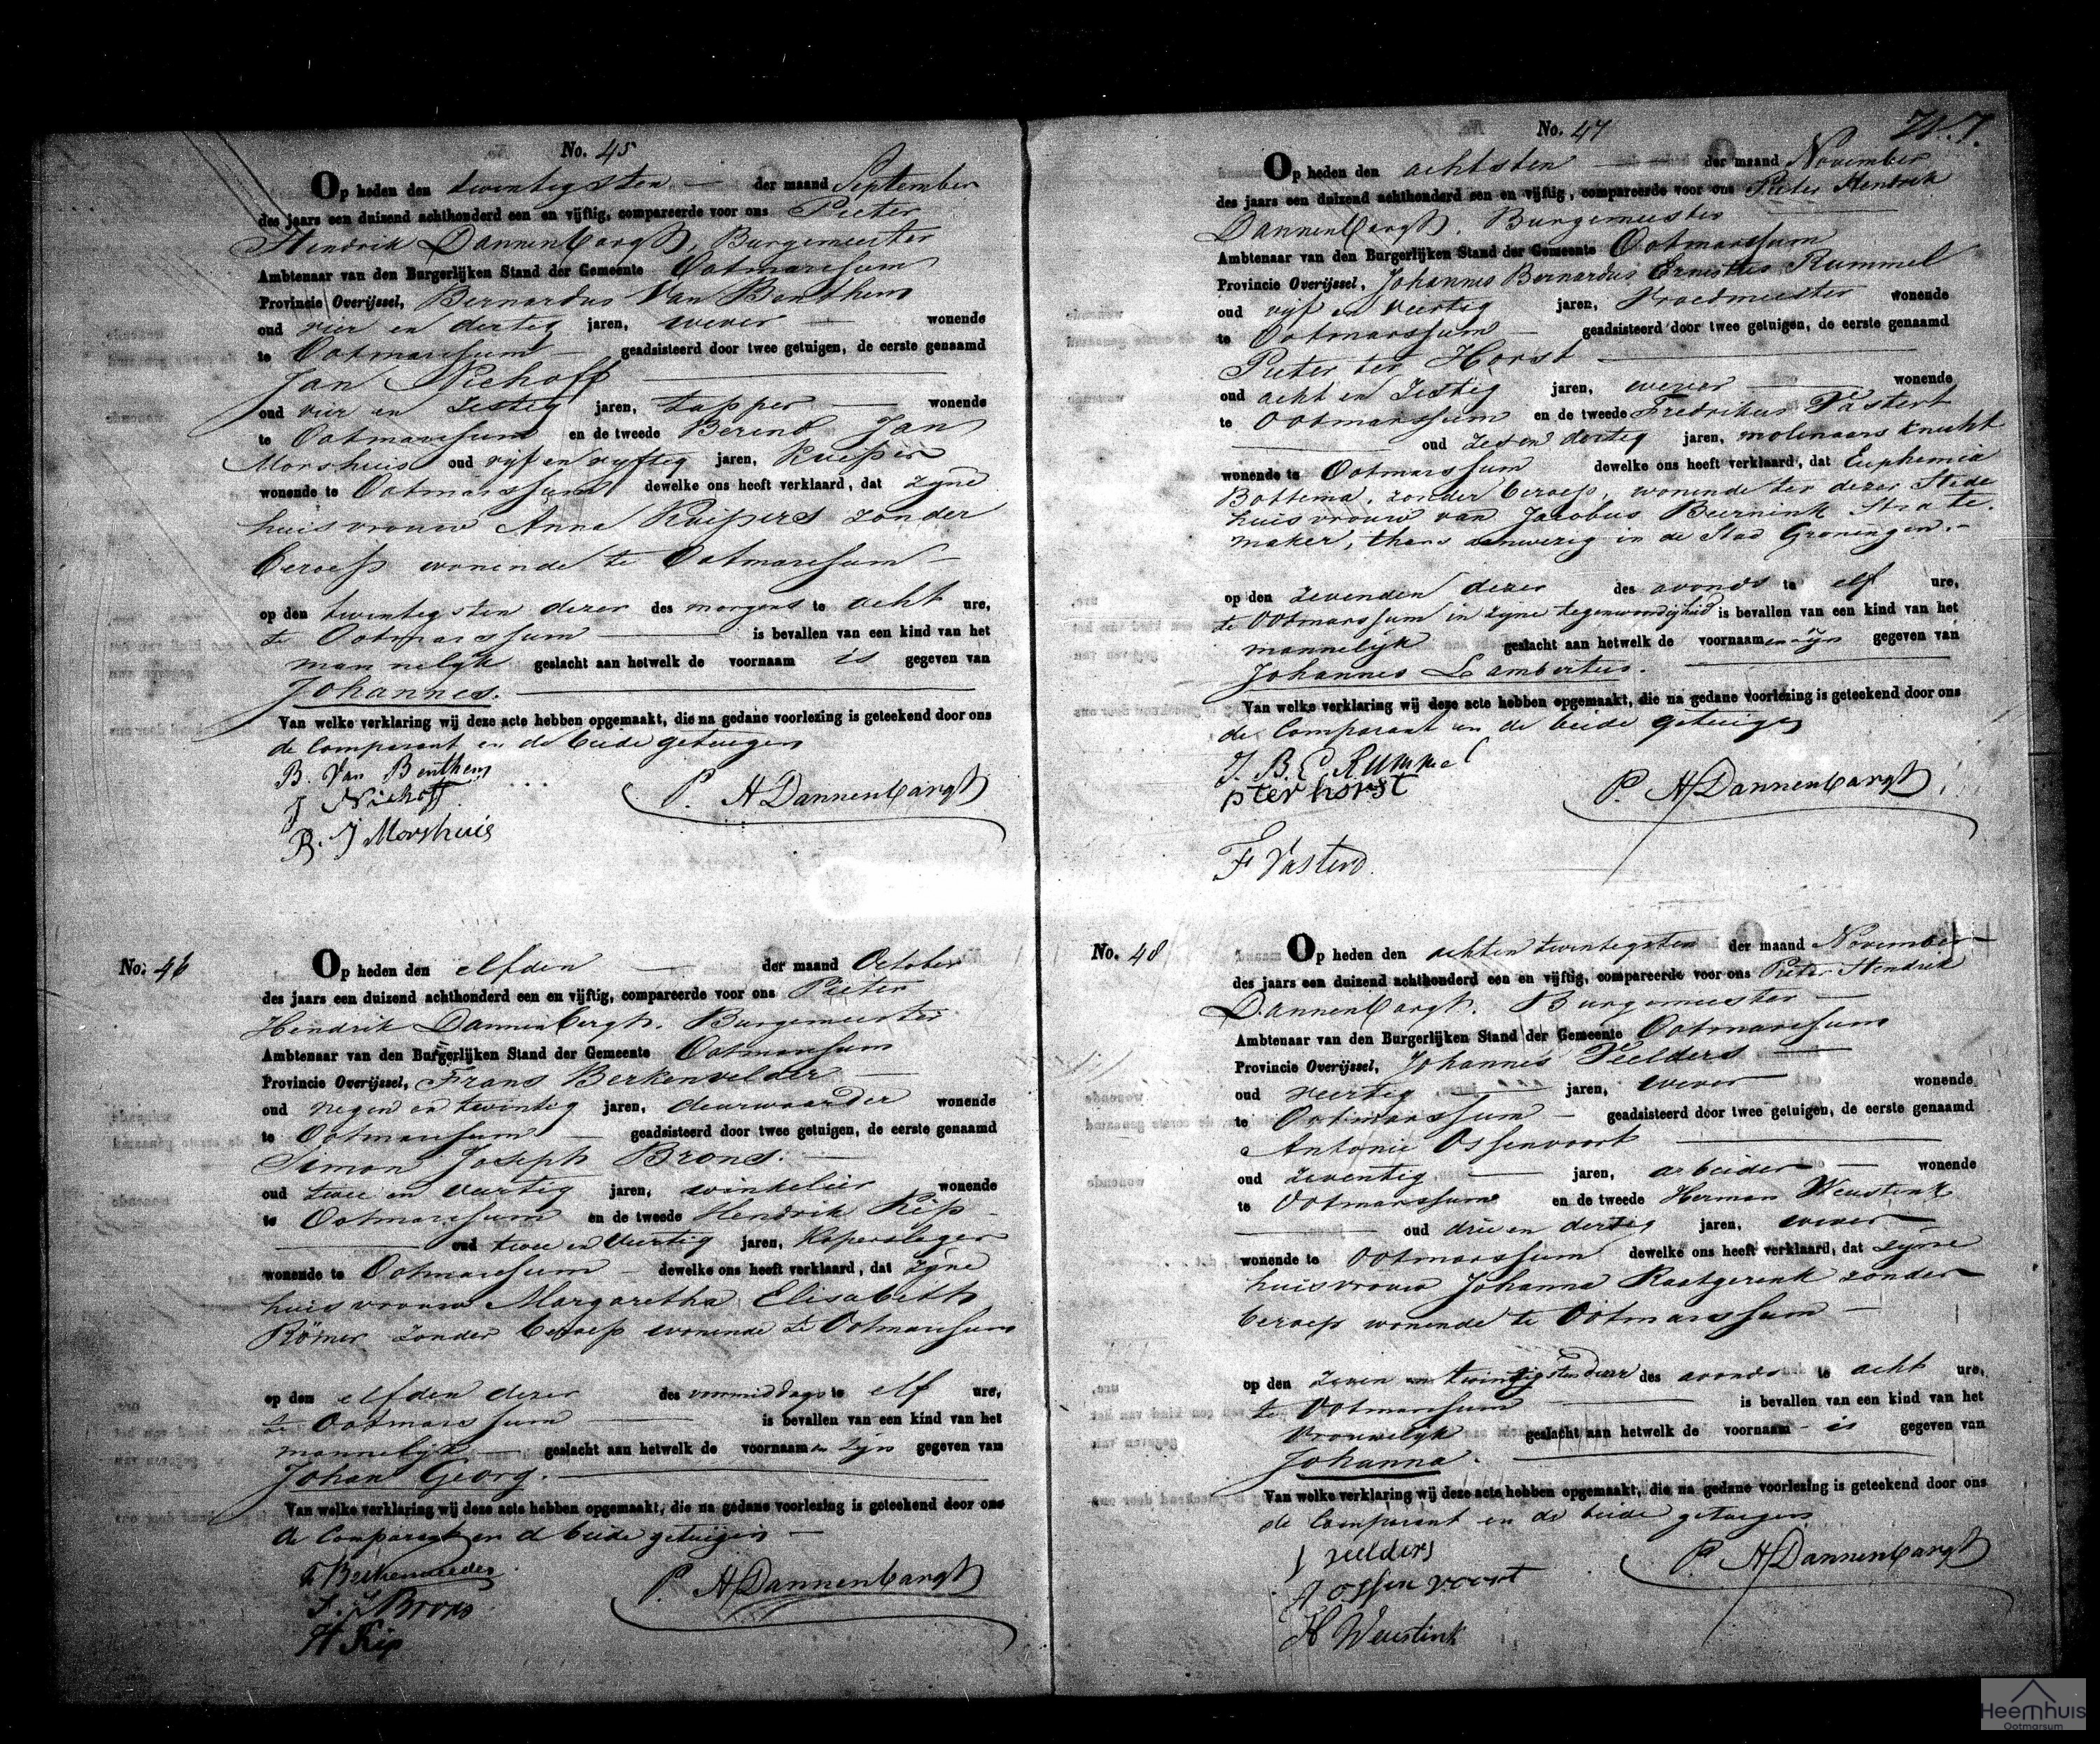 No. 45
Op heden den twintigsten — der maand September
des jaars een duizend achthonderd een en vijftig, compareerde voor ons Pieter
Hendrik Dannenbargh, Burgemeester
Ambtenaar van den Burgerlijken Stand der Gemeente Ootmarssum
Provincie Overijssel, Bernardus Van Benthem
oud vier en dertig jaren, wever — wonende
te Ootmarssum — geadsisteerd door twee getuigen, de eerste genaamd
Jan Niehoff
oud vier en zestig jaren, tapper — wonende
te Ootmarssum en de tweede Berend Jan
Morshuis oud vijf en vyftig jaren, Kuiper
wonende te Ootmarssum dewelke ons heeft verklaard, dat zyne
huisvrouw Anna Kuipers zonder
beroep wonende te Ootmarssum —
op den twintigsten dezer des morgens te acht ure,
te Ootmarssum — is bevallen van een kind van het
mannelyk geslacht aan hetwelk de voornaam is gegeven van
Johannes. —
Van welke verklaring wij deze acte hebben opgemaakt, die na gedane voorlezing is geteekend door ons
de Comparant en de beide getuigen
B. Van Benthem
J Niehoff
P. H Dannenbargh
B. J Morshuis
No. 46
Op heden den elfden — der maand October
des jaars een duizend achthonderd een en vijftig, compareerde voor ons Pieter
Hendrik Dannenbergh. Burgemeester
Ambtenaar van den Burgerlijken Stand der Gemeente Ootmarssum
Provincie Overijssel, Frans Berkenvelder —
oud negen en twintig jaren, deurwaarder wonende
te Ootmarssum — geadsisteerd door twee getuigen, de eerste genaamd
Simon Joseph Brons. —
oud twee en veertig jaren, winkelier wonende
te Ootmarssum en de tweede Hendrik Kip —
— oud twee en veertig jaren, Koperslager
wonende te Ootmarssum — dewelke ons heeft verklaard, dat zyne
huisvrouw Margaretha Elisabeth
Römer zonder beroep wonende te Ootmarssum
op den elfden dezer des voormiddags te elf ure,
te Ootmarssum — is bevallen van een kind van het
mannelyk — geslacht aan hetwelk de voornaamen zyn gegeven van
Johan Georg. —
Van welke verklaring wij deze acte hebben opgemaakt, die na gedane voorlezing is geteekend door ons
de Comparant en d beide getuigen —
F Berkenvelder
P. H Dannenbargh
S. J Brons
H Kip
No. 47
Op heden den achtsten — der maand November
des jaars een duizend achthonderd een en vijftig, compareerde voor ons Pieter Hendrik
Dannenbergh. Burgemeester
Ambtenaar van den Burgerlijken Stand der Gemeente Ootmarssum
Provincie Overijssel, Johannes Bernardus Ernestus Rummel
oud vijf en veertig jaren, Vroedmeester wonende
te Ootmarssum — geadsisteerd door twee getuigen, de eerste genaamd
Pieter ter Horst —
oud acht en zestig jaren, wever — wonende
te Ootmarssum en de tweede Fredrikus Vastert
— oud zes en dertig jaren, molenaars knecht
wonende te Ootmarssum dewelke ons heeft verklaard, dat Euphemia
Bottema, zonder beroep, wonende ter dezer Stede
huisvrouw van Jacobus Beernink Strate-
maker, thans aanwezig in de Stad Groningen. —
op den zevenden dezer des avonds te elf ure,
te Ootmarssum in zyne tegenwoordigheid is bevallen van een kind van het
mannelyk geslacht aan hetwelk de voornaamen zyn gegeven van
Johannes Lambertus. —
Van welke verklaring wij deze acte hebben opgemaakt, die na gedane voorlezing is geteekend door ons
de Comparant en de beide getuigen
J. B. E Rummel
p ter horst
P. H Dannenbargh
F Vasterd
No. 48
Op heden den achten twintigsten der maand November —
des jaars een duizend achthonderd een en vijftig, compareerde voor ons Pieter Hendrik
Dannenbargh. Burgemeester —
Ambtenaar van den Burgerlijken Stand der Gemeente Ootmarssum
Provincie Overijssel, Johannes Veelders —
oud veertig — jaren, wever — wonende
te Ootmarssum — geadsisteerd door twee getuigen, de eerste genaamd
Antonie Ossenvoort —
oud zeventig — jaren, arbeider — wonende
te Ootmarssum en de tweede Herman Weustink
— oud drie en dertig jaren, wever —
wonende te Ootmarssum dewelke ons heeft verklaard, dat zyne
huisvrouw Johanna Raatgerink zonder
beroep wonende te Ootmarssum —
op den zeven en twintigsten dezer des avonds te acht ure,
te Ootmarssum — is bevallen van een kind van het
Vrouwelyk geslacht aan hetwelk de voornaam — is gegeven van
Johanna. —
Van welke verklaring wij deze acte hebben opgemaakt, die na gedane voorlezing is geteekend door ons
de Comparant en de beide getuigen
J velders
P. H Dannenbargh
A ossenvoort
H Weustink
Heemhuis
Ootmarsum